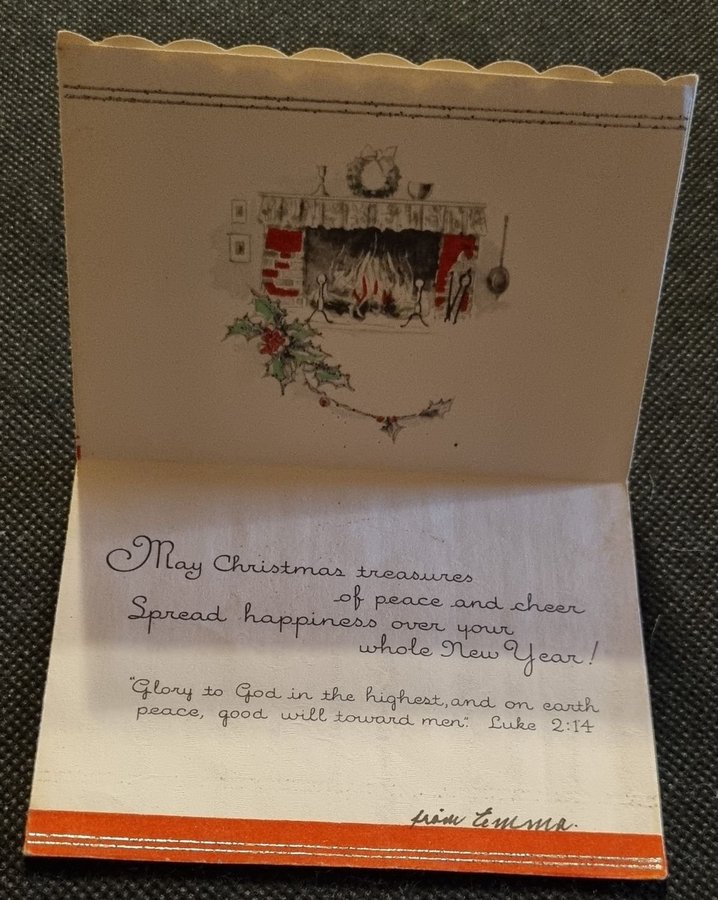 May Christmas treasures
of peace and cheer
Spread happiness over your
whole New Year!
"Glory to God in the highest, and on earth
peace, good will toward men". Luke 2:14
from Emma.